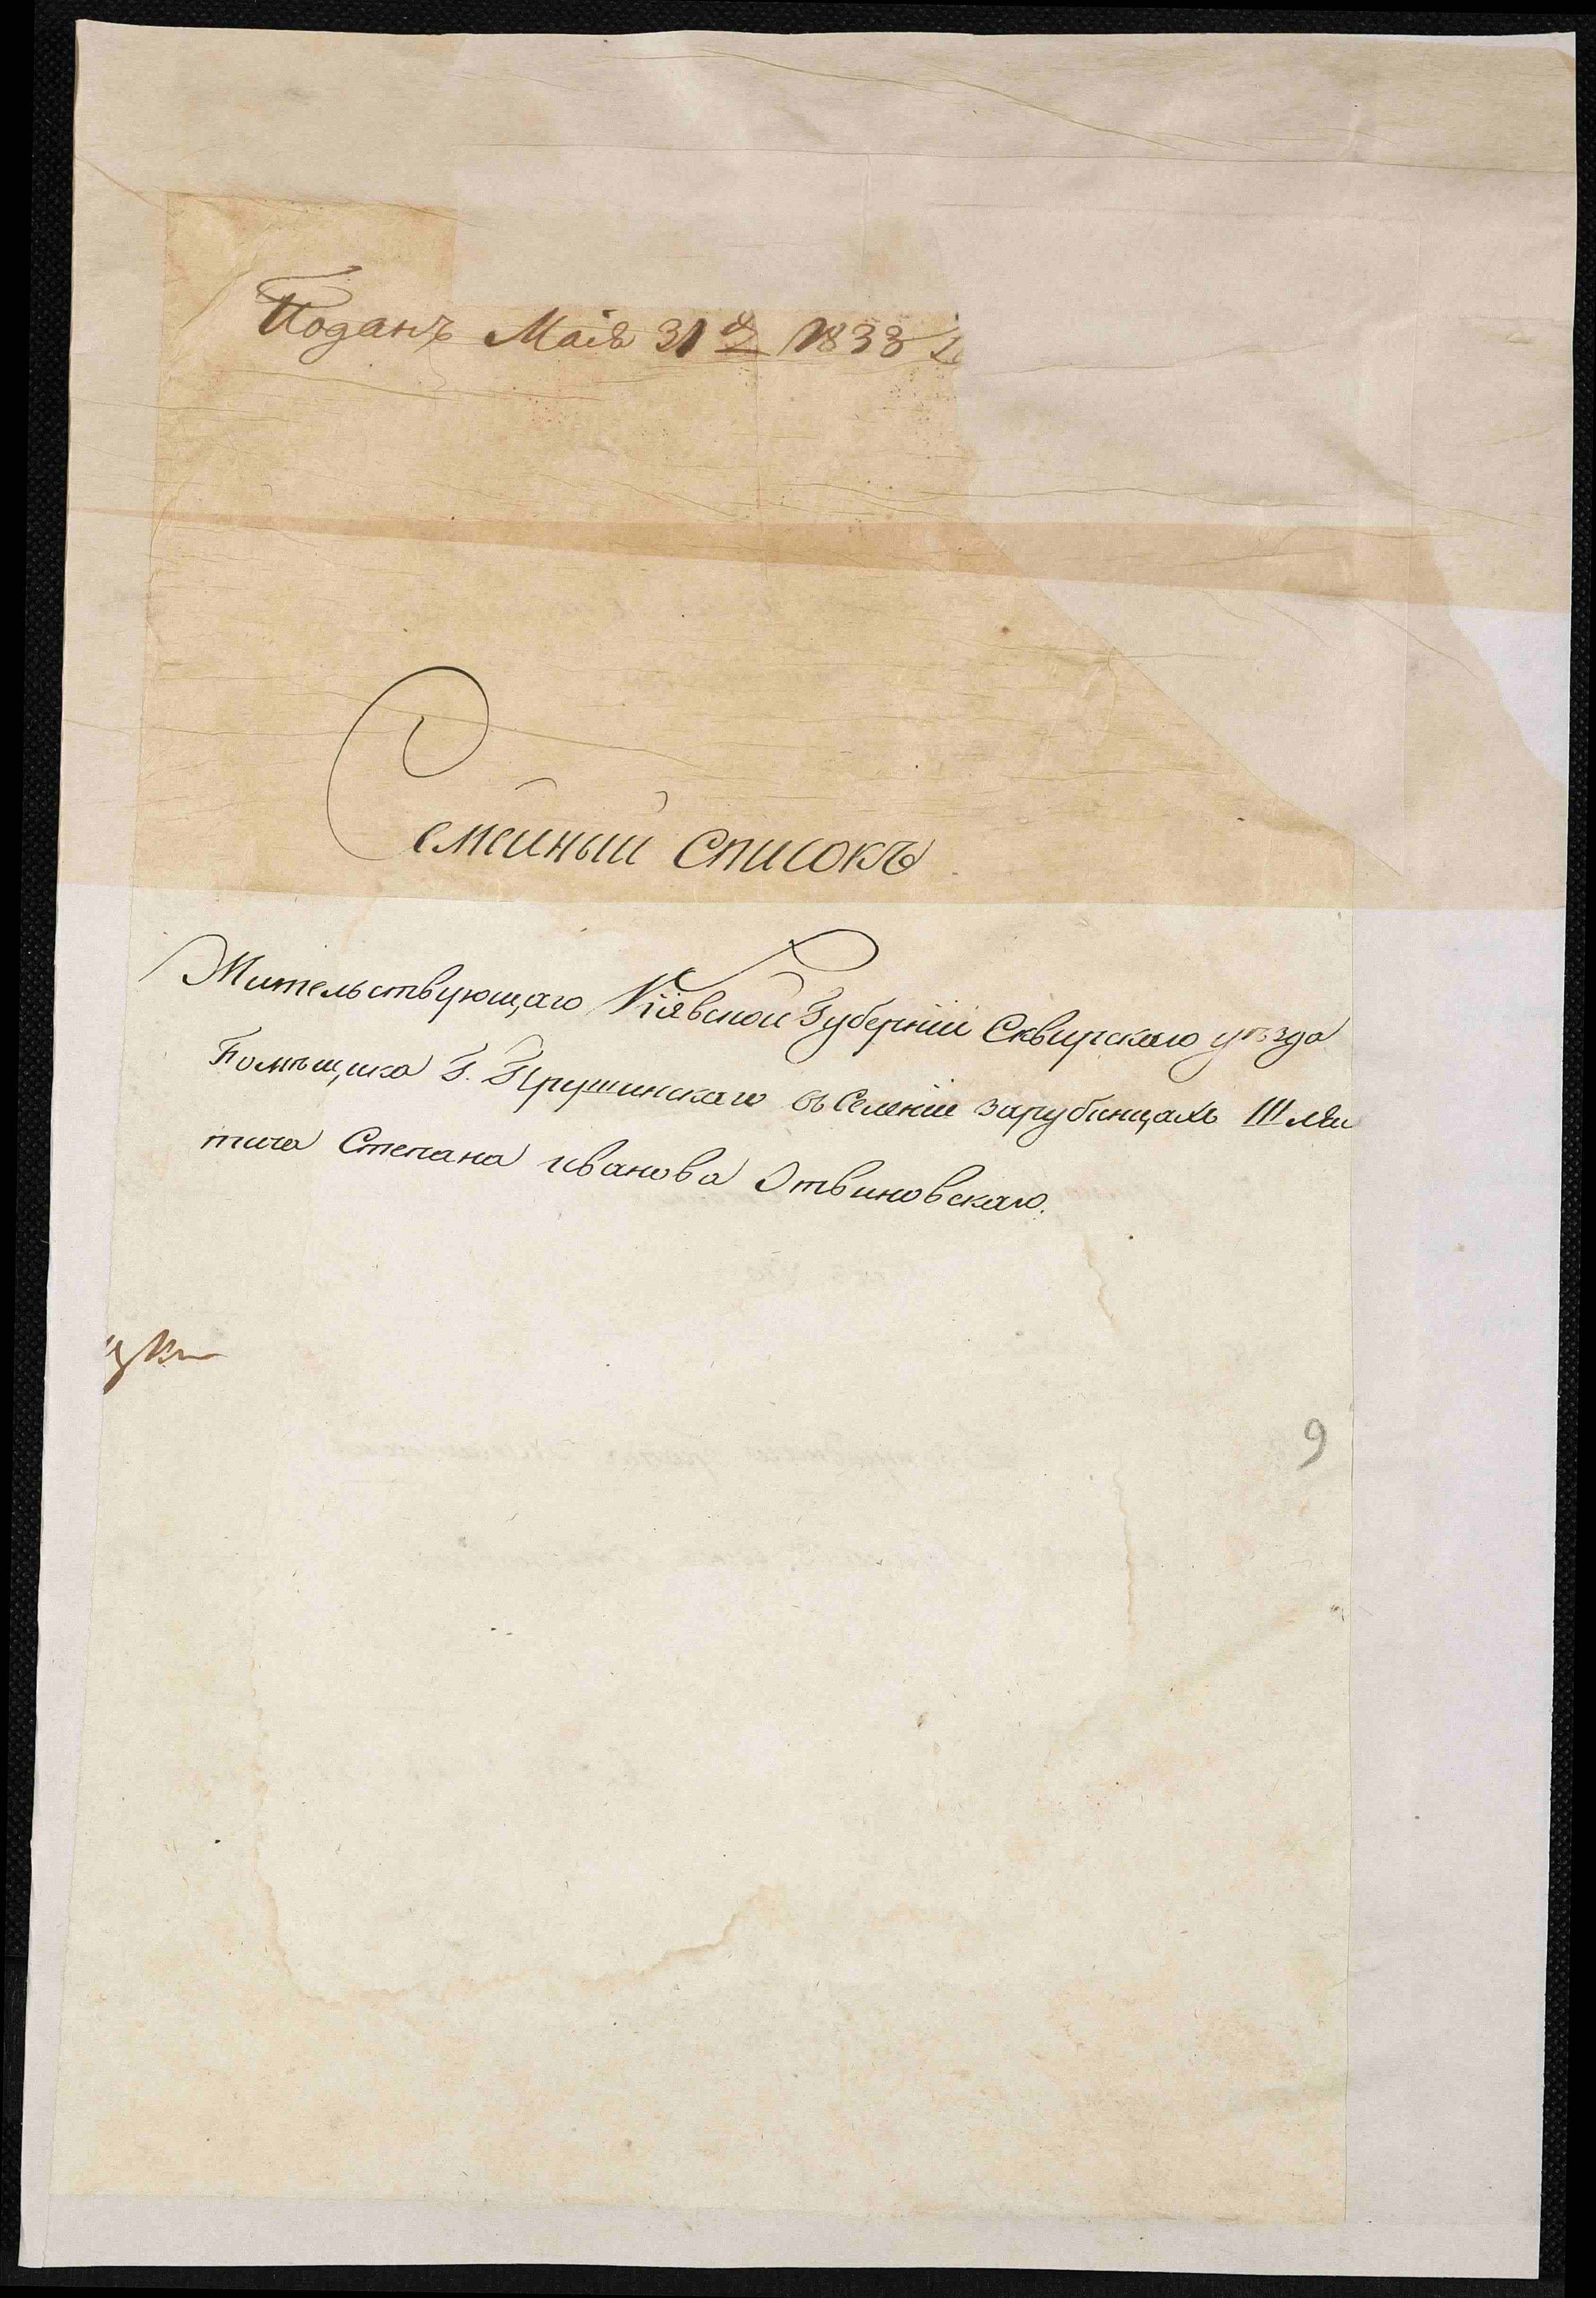 Поданъ Маія 31 д 1833 г
Семейный списокъ
Жительствующаго Кіевской Губерніи Сквирскаго уѣзда
Помѣщика Г. Прушинскаго въ Селеніи Зарубинцахъ Шля
тича Степана иванова Отвиновскаго.
9